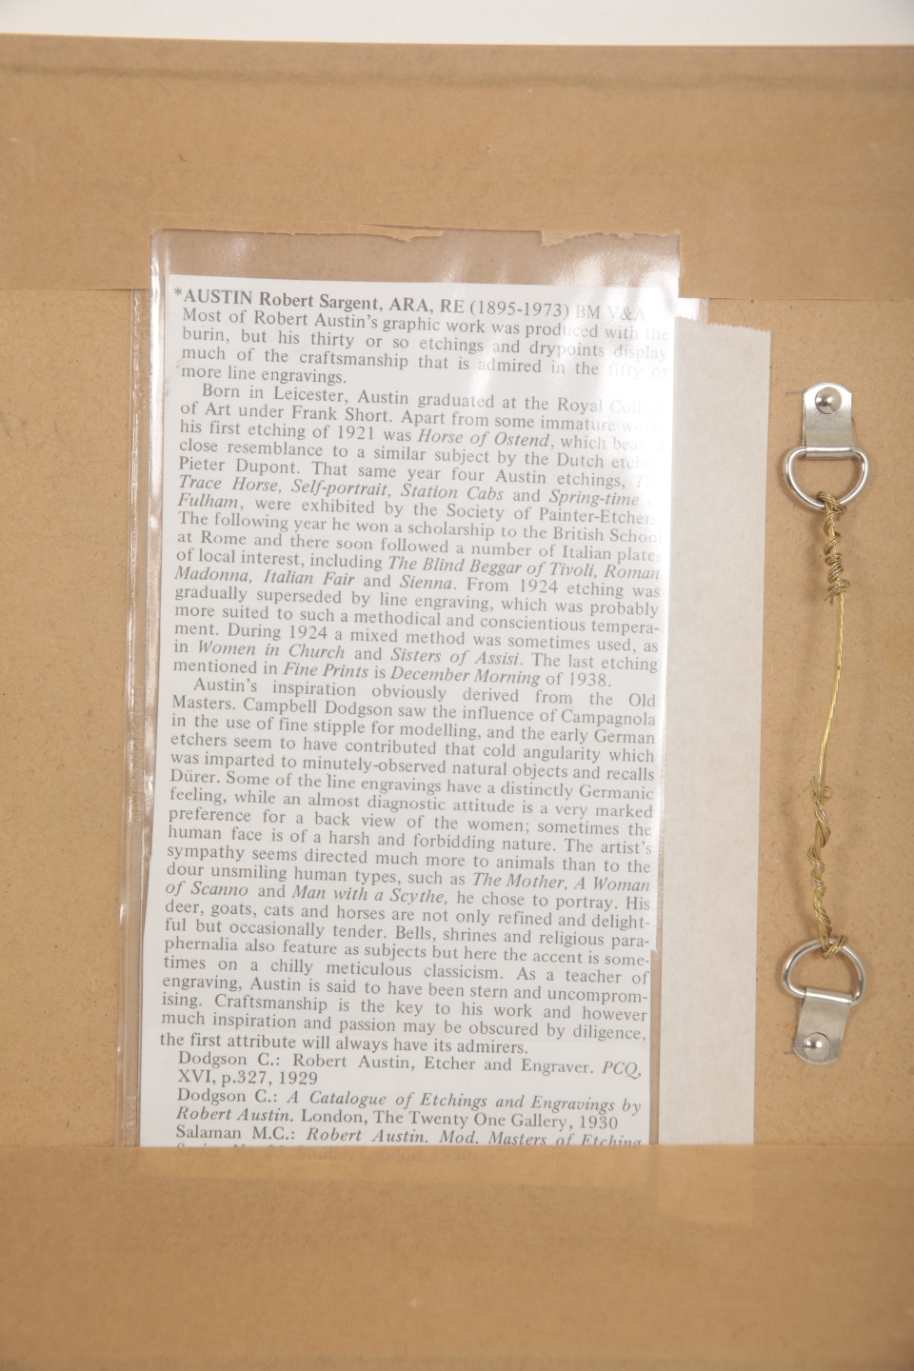 *AUSTIN Robert Sargent, ARA, RE (1895-1973) BM V&A
Most of Robert Austin's graphic work was produced with the
burin, but his thirty or so etchings and drypoints display
much of the craftsmanship that is admired in the fifty or
more line engravings.
Born in Leicester, Austin graduated at the Royal College
of Art under Frank Short. Apart from some immature work
his first etching of 1921 was Horse of Ostend, which bears
close resemblance to a similar subject by the Dutch etcher
Pieter Dupont. That same year four Austin etchings,
Trace Horse, Self-portrait, Station Cabs and Spring-time
Fulham, were exhibited by the Society of Painter-Etchers.
The following year he won a scholarship to the British School
at Rome and there soon followed a number of Italian plates
of local interest, including The Blind Beggar of Tivoli, Roman
Madonna, Italian Fair and Sienna. From 1924 etching was
gradually superseded by line engraving, which was probably
more suited to such a methodical and conscientious tempera-
ment. During 1924 a mixed method was sometimes used, as
in Women in Church and Sisters of Assisi. The last etching
mentioned in Fine Prints is December Morning of 1938.
Austin's inspiration obviously derived from the Old
Masters. Campbell Dodgson saw the influence of Campagnola
in the use of fine stipple for modelling, and the early German
etchers seem to have contributed that cold angularity which
was imparted to minutely-observed natural objects and recalls
Dürer. Some of the line engravings have a distinctly Germanic
feeling, while an almost diagnostic attitude is a very marked
preference for a back view of the women; sometimes the
human face is of a harsh and forbidding nature. The artist's
sympathy seems directed much more to animals than to the
dour unsmiling human types, such as The Mother, A Woman
of Scanno and Man with a Scythe, he chose to portray. His
deer, goats, cats and horses are not only refined and delight-
ful but occasionally tender. Bells, shrines and religious para-
phernalia also feature as subjects but here the accent is some-
times on a chilly meticulous classicism. As a teacher of
engraving, Austin is said to have been stern and uncomprom-
ising. Craftsmanship is the key to his work and however
much inspiration and passion may be obscured by diligence,
the first attribute will always have its admirers.
Dodgson C.: Robert Austin, Etcher and Engraver. PCQ,
XVI, p.327, 1929
Dodgson C.: A Catalogue of Etchings and Engravings by
Robert Austin. London, The Twenty One Gallery, 1930
Salaman M.C.: Robert Austin. Mod. Masters of Etching